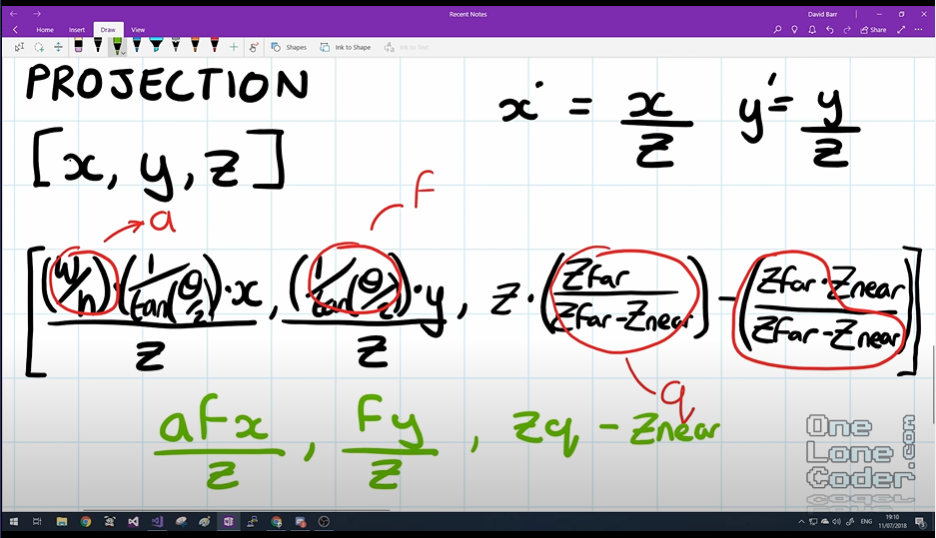 Recent Notes
David Barr
Home Insert Draw View
Share
Shapes Ink to Shape Ink to Text
PROJECTION
x' = x/z y' = y/z
[x, y, z]
a
F
[(w/h)·(1/tan(θ/2))·x/z, (1/tan(θ/2))·y/z, z·(Zfar/Zfar-Znear) - (Zfar·Znear/Zfar-Znear)]
q
aFx/z, Fy/z, zq - Znear
One
Lone
Coder.com
ENG
19:10
11/07/2018